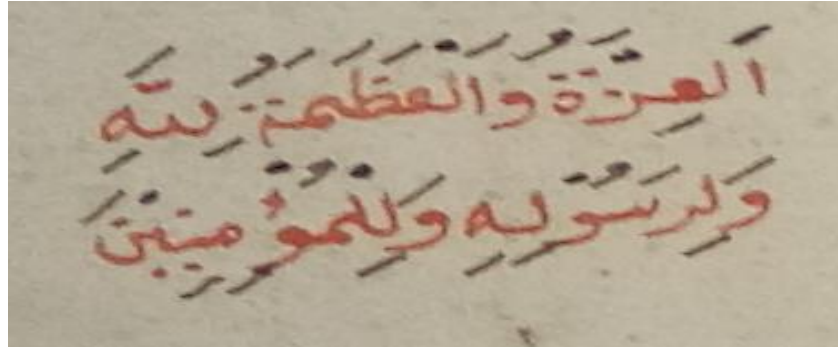 اَلْعِزَّةُ وَالْعَظَمَةُ لِلَّهِ
وَلِرَسُولِهِ وَلِلْمُؤْمِنِينَ